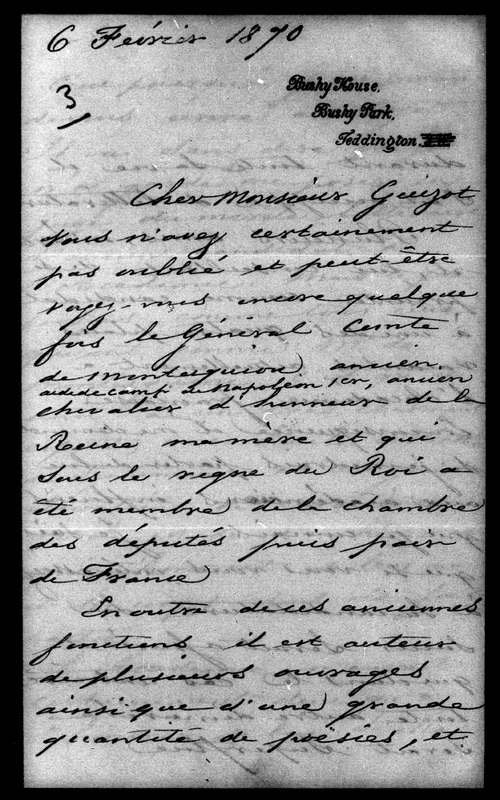 6 Février 1870
3
Bushy House,
Bushy Park,
Teddington.
Cher Monsieur Guizot
Vous n'avez certainement
pas oublié et peut être
voyez-vous encore quelque
fois le Général Comte
de Montesquiou, ancien
aide de camp de Napoléon 1er, ancien
chevalier d'honneur de la
Reine ma mère et qui
sous le regne du Roi a
été membre de la chambre
des députés puis pair
de France
En outre de ces anciennes
fonctions il est auteur
de plusieurs ouvrages
ainsi que d'une grande
quantité de poësies, et